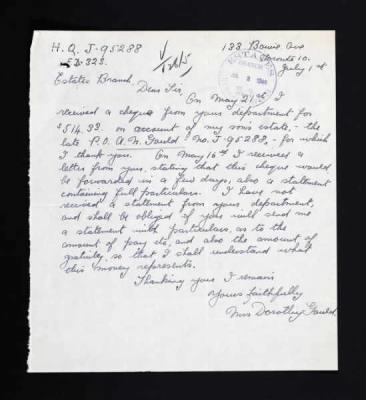 H.Q. J-95288
133 Bowie Ave
Toronto 10.
July 1st
ESTATES
BRANCH
Estates Branch.
Dear Sir,
On May 21st I
received a cheque from your department for
$514.33. on account of my sons estate, - the
late P.O. A.N. Gauld. No. J-95288, - for which
I thank you. On May 15th I received a
letter from you, stating that this cheque would
be forwarded in a few days, also a statement
containing full particulars. I have not
received a statement from your department,
and shall be obliged if you will send me
a statement with particulars, as to the
amount of pay etc, and also the amount of
gratuity, so that I shall understand what
this money represents.
Thanking you I remain
Yours faithfully
Mrs Dorothy Gauld